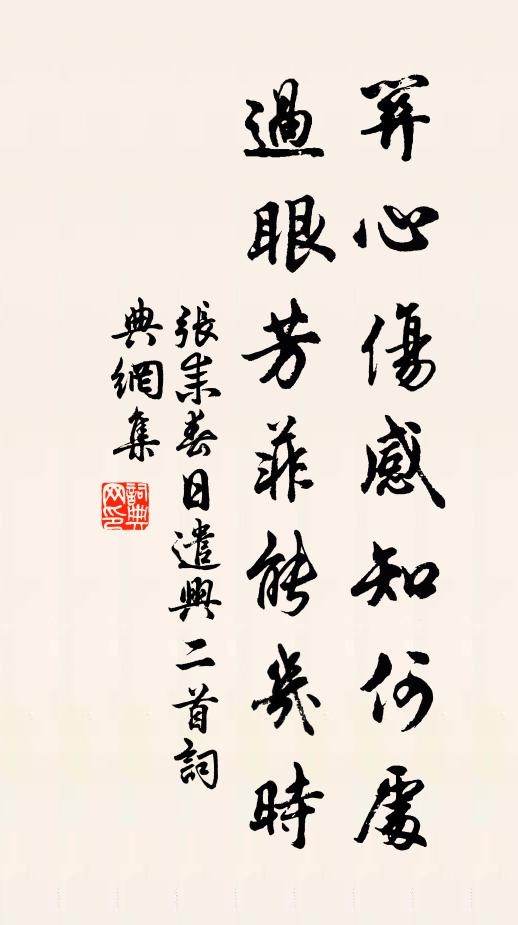 關心傷感知何處
過眼芳菲能幾時
張耒春日遣興二首詞
典網集
詞典
网印